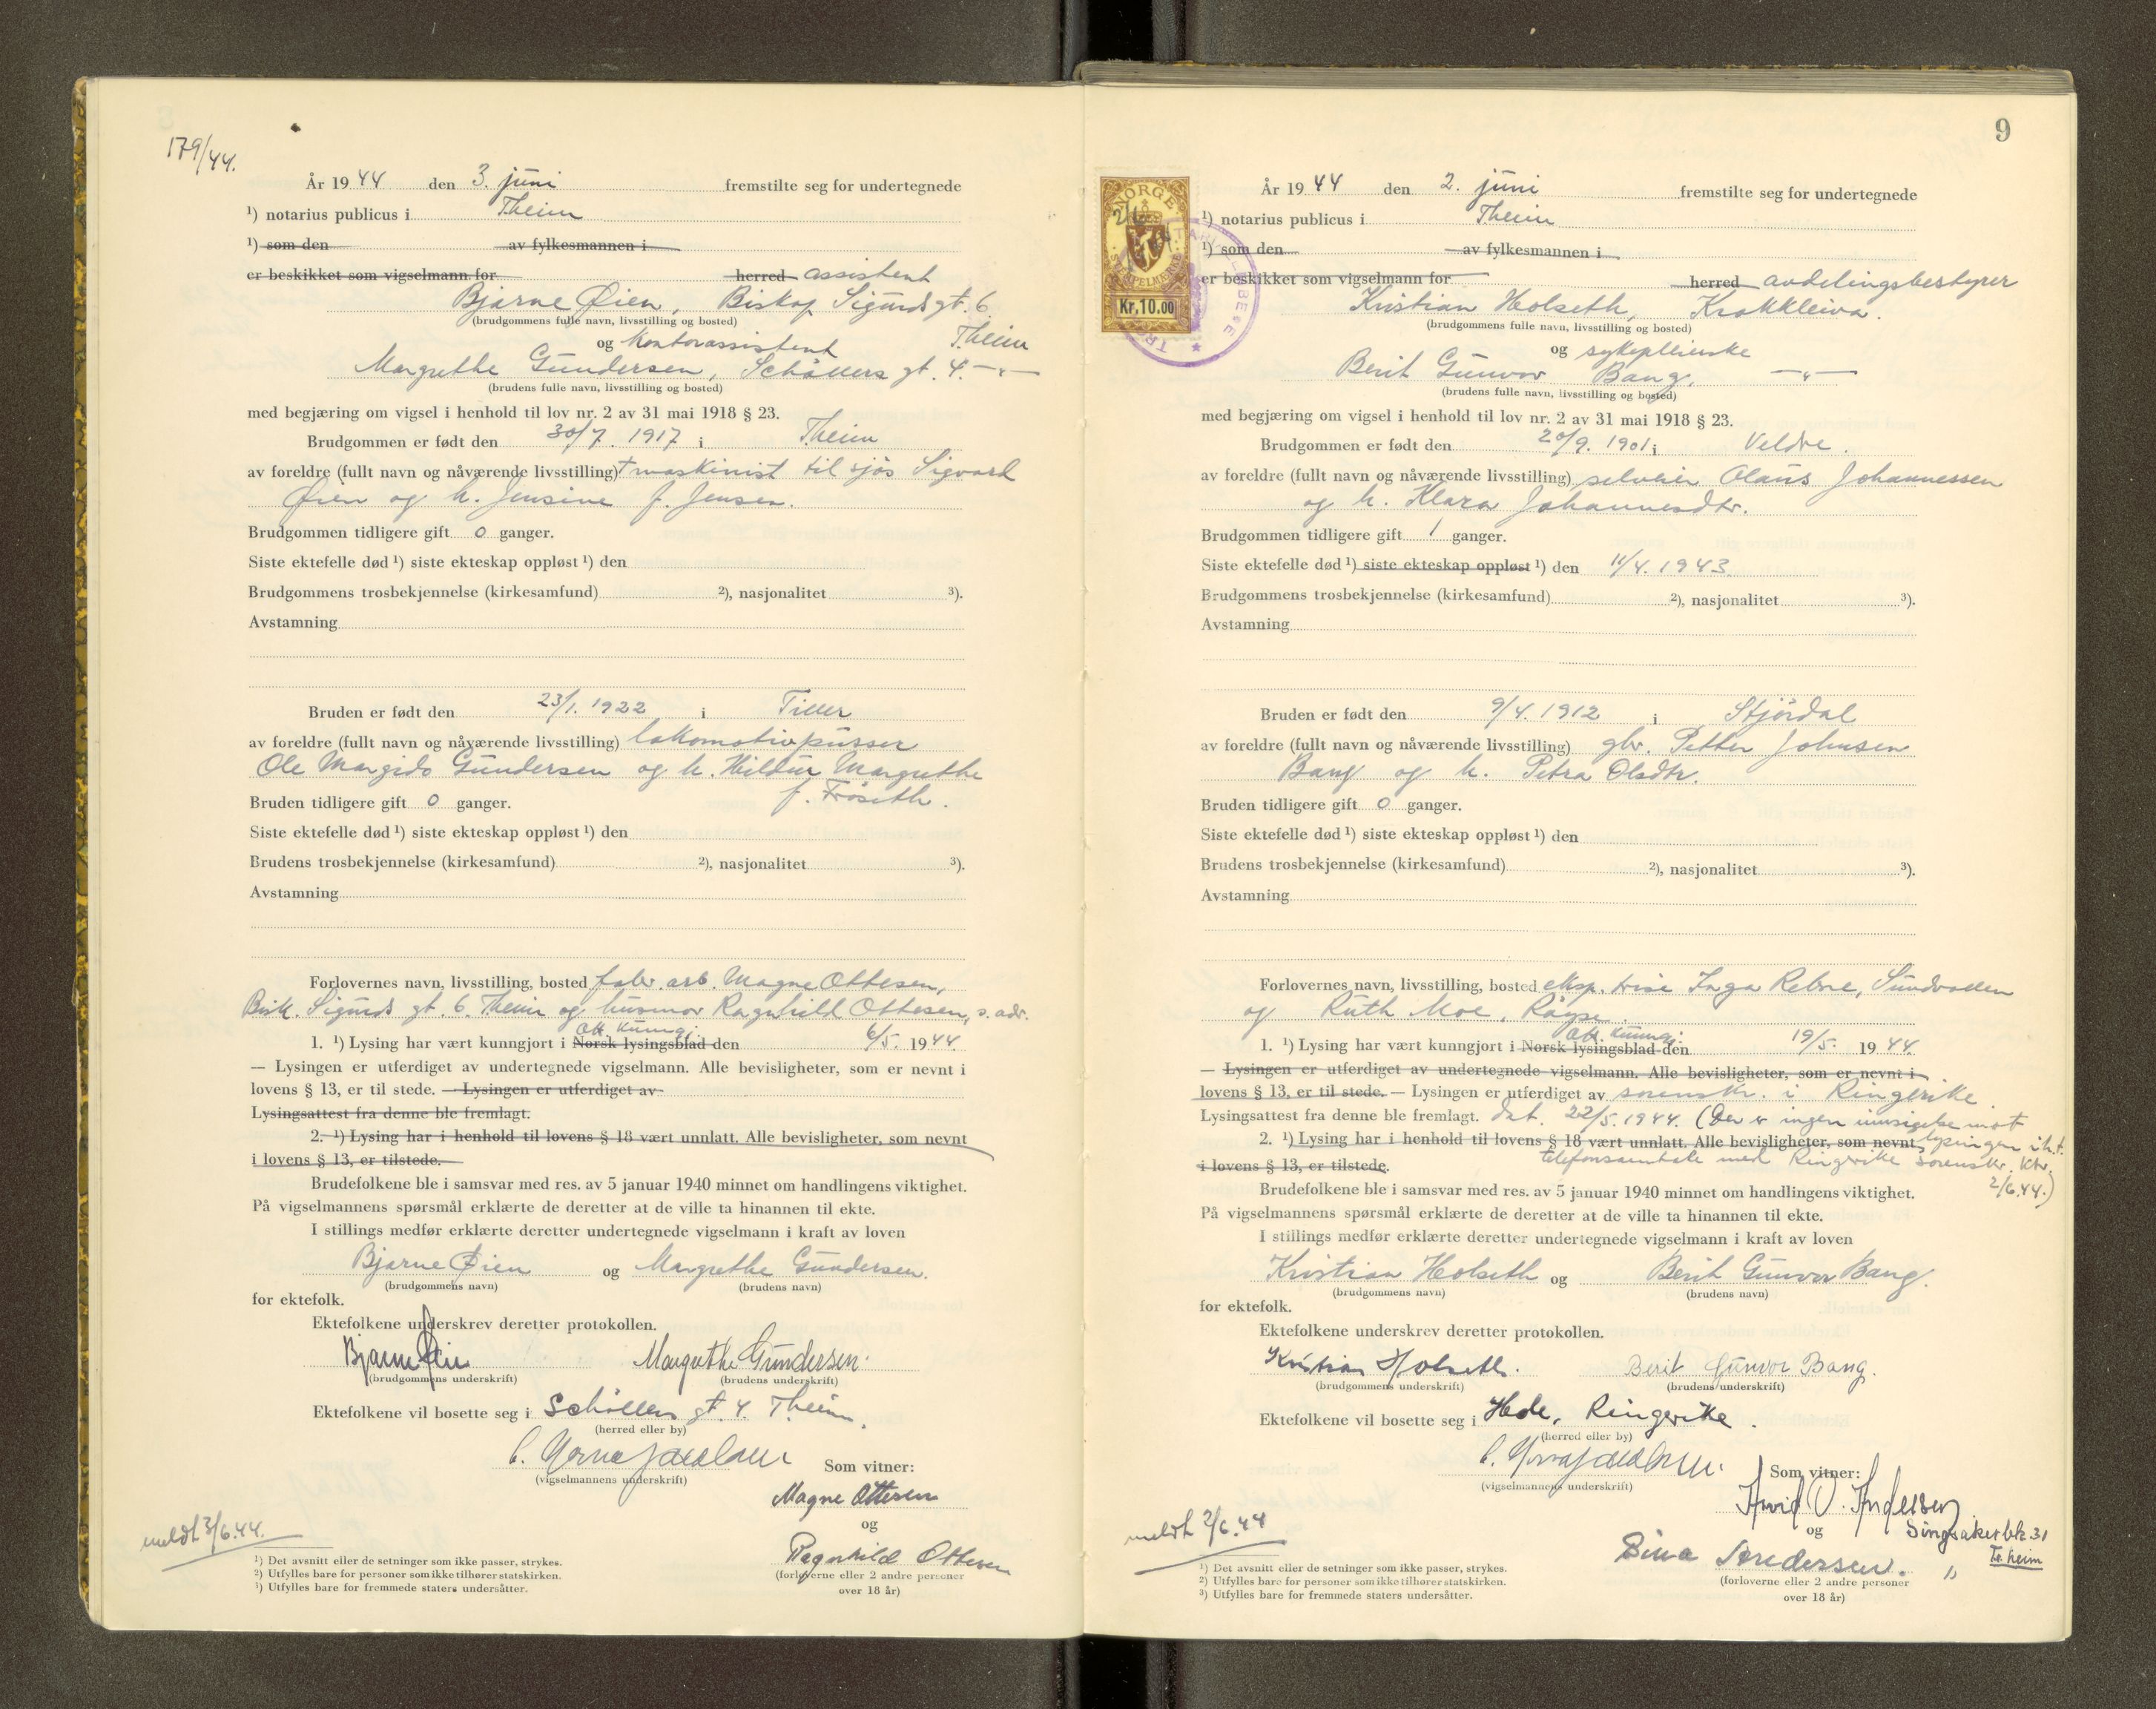 179/44.
År 1944 den 3. juni fremstilte seg for undertegnede
¹) notarius publicus i Theim
¹) som den av fylkesmannen i
er beskikket som vigselmann for herred assistent
Bjarne Øien, Biskop Sigurds gt. 6
(brudgommens fulle navn, livsstilling og bosted)
Theim
og kontorassistent
Margrethe Gundersen, Schøllers gt. 4. —"—
(brudens fulle navn, livsstilling og bosted)
med begjæring om vigsel i henhold til lov nr. 2 av 31 mai 1918 § 23.
Brudgommen er født den 30/7. 1917 i Theim
av foreldre (fullt navn og nåværende livsstilling) † maskinist til sjøs Sigvard
Øien og h. Jensine f. Jensen.
Brudgommen tidligere gift 0 ganger.
Siste ektefelle død ¹) siste ekteskap oppløst ¹) den
Brudgommens trosbekjennelse (kirkesamfund) ²), nasjonalitet ³).
Avstamning
Bruden er født den 23/1. 1922 i Tiller
av foreldre (fullt navn og nåværende livsstilling) lokomotivpusser
Ole Margido Gundersen og h. Hildur Margrethe
f. Frøseth.
Bruden tidligere gift 0 ganger.
Siste ektefelle død ¹) siste ekteskap oppløst ¹) den
Brudens trosbekjennelse (kirkesamfund) ²), nasjonalitet ³).
Avstamning
Forlovernes navn, livsstilling, bosted fabr. arb. Magne Ottesen,
Bisk. Sigurds gt. 6. Theim og husmor Ragnhild Ottesen, s. adr.
Off. kunngj.
1. ¹) Lysing har vært kunngjort i Norsk lysingsblad den 6/5. 1944.
— Lysingen er utferdiget av undertegnede vigselmann. Alle bevisligheter, som er nevnt i
lovens § 13, er til stede. — Lysingen er utferdiget av
Lysingsattest fra denne ble fremlagt.
2. ¹) Lysing har i henhold til lovens § 18 vært unnlatt. Alle bevisligheter, som nevnt
i lovens § 13, er tilstede.
Brudefolkene ble i samsvar med res. av 5 januar 1940 minnet om handlingens viktighet.
På vigselmannens spørsmål erklærte de deretter at de ville ta hinannen til ekte.
I stillings medfør erklærte deretter undertegnede vigselmann i kraft av loven
Bjarne Øien og Margrethe Gundersen.
(brudgommens navn) (brudens navn)
for ektefolk.
Ektefolkene underskrev deretter protokollen.
Bjarne Øien Margrethe Gundersen.
(brudgommens underskrift) (brudens underskrift)
Ektefolkene vil bosette seg i Schøllers gt. 4. Theim.
(herred eller by)
(vigselmannens underskrift) Som vitner:
Magne Ottesen
og
Ragnhild Ottesen
(forloverne eller 2 andre personer
over 18 år)
meldt 3/6.44.
¹) Det avsnitt eller de setninger som ikke passer, strykes.
²) Utfylles bare for personer som ikke tilhører statskirken.
³) Utfylles bare for fremmede staters undersåtter.
9
NORGE
STEMPELMERKE
Kr.10.00
År 1944 den 2. juni fremstilte seg for undertegnede
¹) notarius publicus i Theim
¹) som den av fylkesmannen i
er beskikket som vigselmann for herred avdelingsbestyrer
Kristian Holseth, Krokkleiva.
(brudgommens fulle navn, livsstilling og bosted)
og sykepleierske
Berit Gunvor Bang, —"—
(brudens fulle navn, livsstilling og bosted)
med begjæring om vigsel i henhold til lov nr. 2 av 31 mai 1918 § 23.
Brudgommen er født den 20/9. 1901 i Veldre.
av foreldre (fullt navn og nåværende livsstilling) selveier Olaus Johannessen
og h. Klara Johannesdtr.
Brudgommen tidligere gift 1 ganger.
Siste ektefelle død ¹) siste ekteskap oppløst ¹) den 11/4. 1943.
Brudgommens trosbekjennelse (kirkesamfund) ²), nasjonalitet ³).
Avstamning
Bruden er født den 9/4. 1912 i Stjørdal
av foreldre (fullt navn og nåværende livsstilling) gbr. Petter Johnsen
Bang og h. Petra Olsdtr.
Bruden tidligere gift 0 ganger.
Siste ektefelle død ¹) siste ekteskap oppløst ¹) den
Brudens trosbekjennelse (kirkesamfund) ²), nasjonalitet ³).
Avstamning
Forlovernes navn, livsstilling, bosted eksp. trise Inga Rebne, Sundvollen
og Ruth Moe, Røyse.
Off. kunngj.
1. ¹) Lysing har vært kunngjort i Norsk lysingsblad den 19/5. 1944.
— Lysingen er utferdiget av undertegnede vigselmann. Alle bevisligheter, som er nevnt i
lovens § 13, er til stede. — Lysingen er utferdiget av sorenskr. i Ringerike.
Lysingsattest fra denne ble fremlagt. dat. 22/5.1944. (Der er ingen innsigelse mot
2. ¹) Lysing har i henhold til lovens § 18 vært unnlatt. Alle bevisligheter, som nevnt lysingen iht.
i lovens § 13, er tilstede. telefonsamtale med Ringerike sorenskr. ktr.
2/6.44.)
Brudefolkene ble i samsvar med res. av 5 januar 1940 minnet om handlingens viktighet.
På vigselmannens spørsmål erklærte de deretter at de ville ta hinannen til ekte.
I stillings medfør erklærte deretter undertegnede vigselmann i kraft av loven
Kristian Holseth og Berit Gunvor Bang.
(brudgommens navn) (brudens navn)
for ektefolk.
Ektefolkene underskrev deretter protokollen.
Kristian Holseth. Berit Gunvor Bang.
(brudgommens underskrift) (brudens underskrift)
Ektefolkene vil bosette seg i Hole, Ringerike.
(herred eller by)
(vigselmannens underskrift) Som vitner:
Arvid O. Andersen
og Singsakerbk. 31
Tr.heim
Sina Andersen. "
(forloverne eller 2 andre personer
over 18 år)
meldt 2/6.44
¹) Det avsnitt eller de setninger som ikke passer, strykes.
²) Utfylles bare for personer som ikke tilhører statskirken.
³) Utfylles bare for fremmede staters undersåtter.